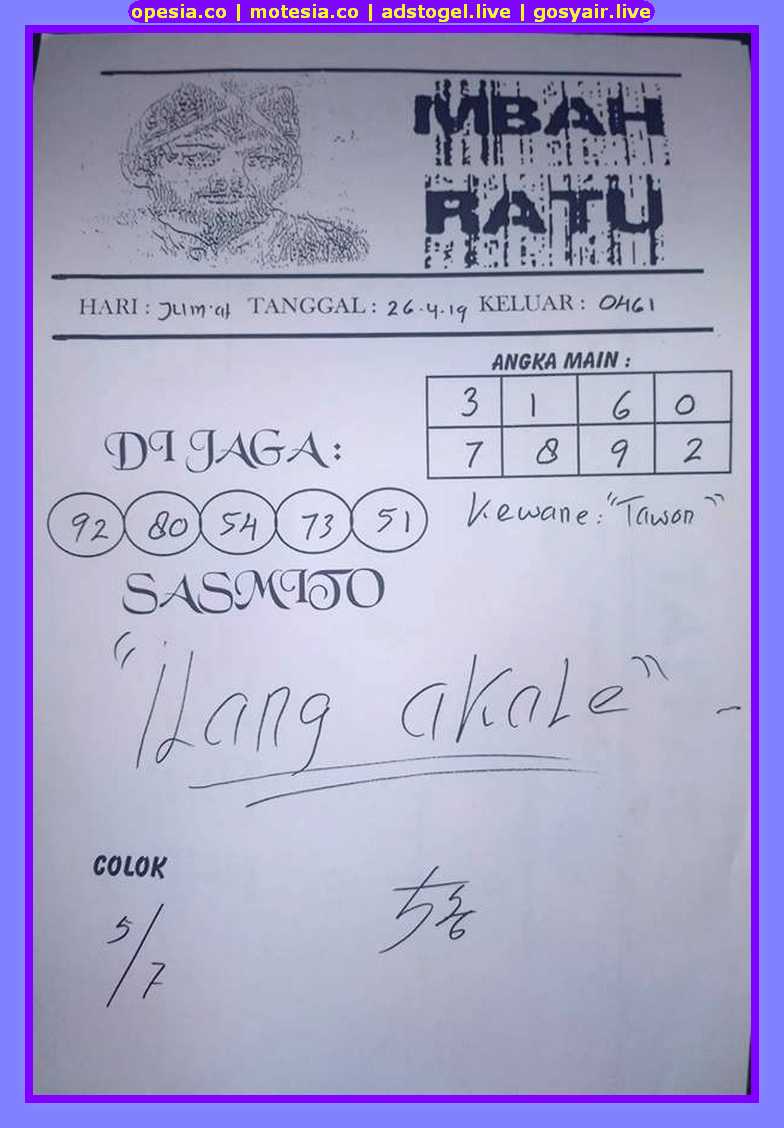 opesia.co | motesia.co | adstogel.live | gosyair.live
MBAH
RATU
HARI : Jum'at TANGGAL : 26-4-19 KELUAR : 0461
ANGKA MAIN :
3 1 6 0
7 8 9 2
DI JAGA :
92 80 54 73 51
Kewane : "Tawon"
SASMITO
"ilang akale" -
COLOK
5/7